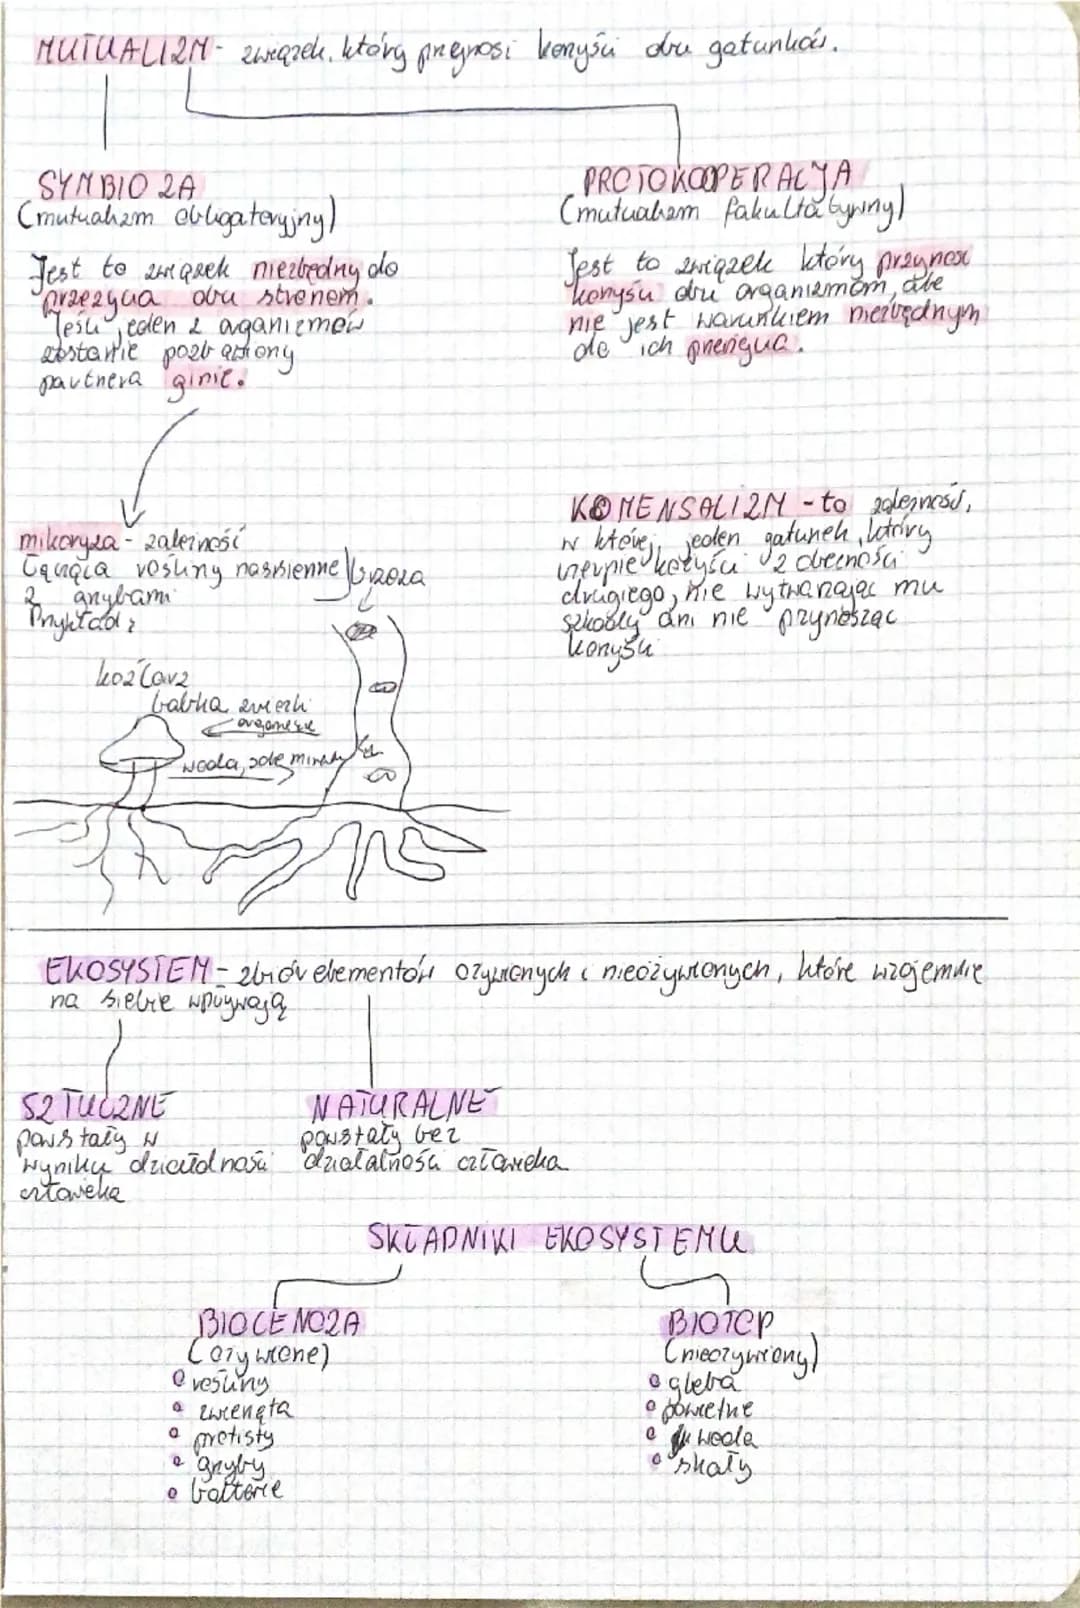 MUTUALIZM - związek, który przynosi korzyści obu gatunków.
SYMBIOZA
(mutualizm obligatoryjny)
Jest to związek niezbędny do
przeżycia obu stronom.
Jeśli jeden z organizmów
zostanie pozbawiony
partnera ginie.
PROTOKOOPERACJA
(mutualizm fakultatywny)
Jest to związek który przynosi
korzyści obu organizmom, ale
nie jest warunkiem niezbędnym
do ich przeżycia.
mikoryza - zależność
Łącząca rośliny nasienne
z grzybami
Przykład:
brzoza
koźlarz
babka
organiczne
woda, sole mineraly
KOMENSALIZM - to zależność,
w której jeden gatunek, który
czerpie kożyści z obecności
drugiego, nie wytwarzając mu
szkody ani nie przynosząc
korzyści
EKOSYSTEM - zbiór elementów ożywionych i nieożywionych, które wzajemnie
na siebie wpływają
SZTUCZNE
powstały w
wyniku działalności
człowieka
NATURALNE
powstały bez
działalności człowieka
SKŁADNIKI EKOSYSTEMU
BIOCENOZA
(ożywione)
rośliny
zwierzęta
protisty
grzyby
bakterie
BIOTOP
(nieożywiony)
gleba
powietrze
woda
skały